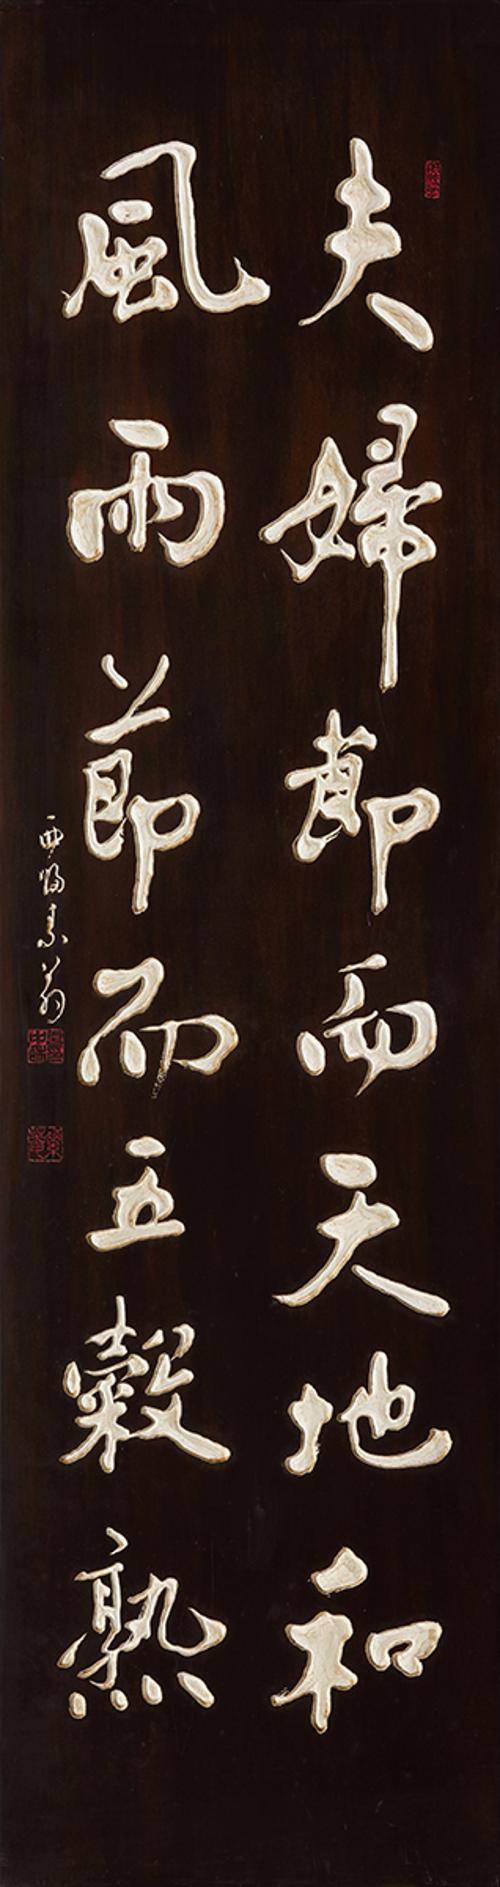 夫婦節而天地和
風雨節而五穀熟
素翁